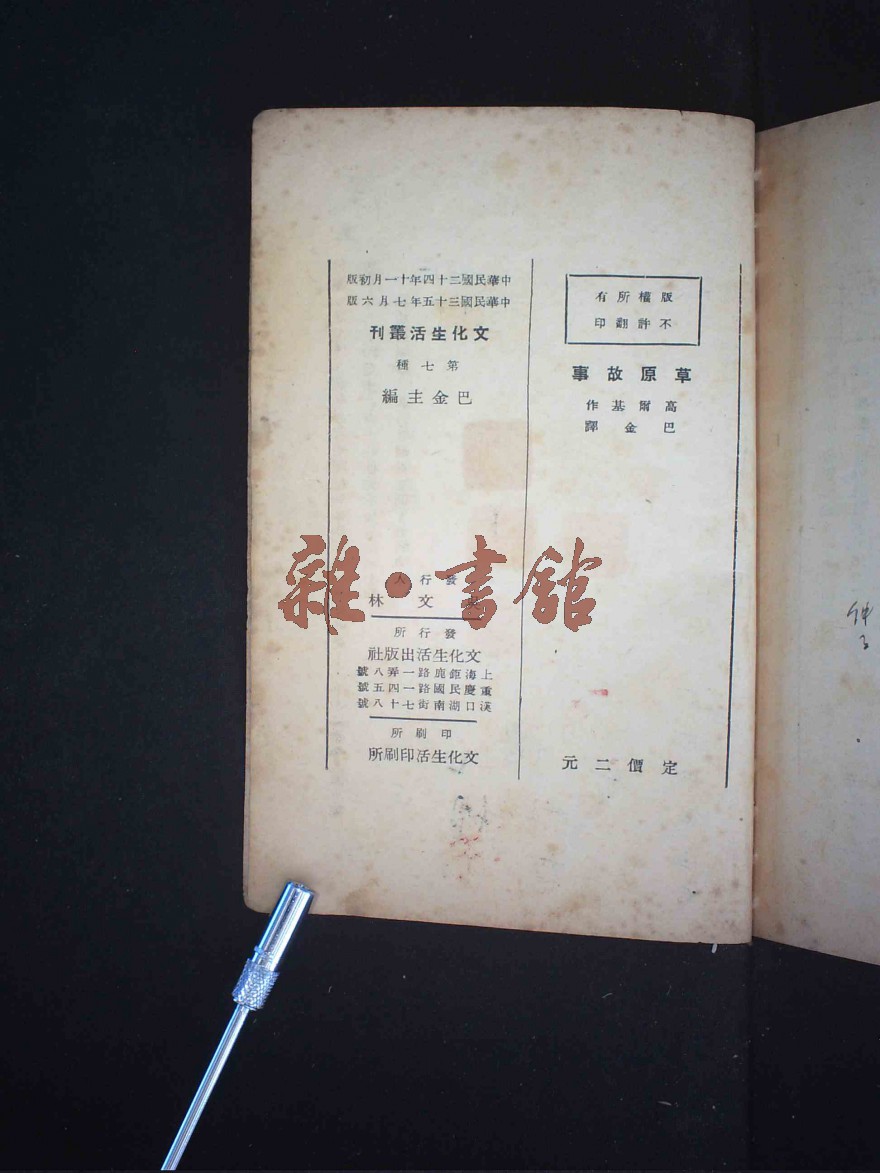 版權所有
不許翻印
草原故事
高爾基作
巴金譯
定價二元
中華民國二十四年十一月初版
中華民國三十五年七月六版
文化生活叢刊
第七種
巴金主編
發行人
文林
發行所
文化生活出版社
上海鉅鹿路一弄八號
重慶民國路一四五號
漢口湖南街七十八號
印刷所
文化生活印刷所
雜·書館